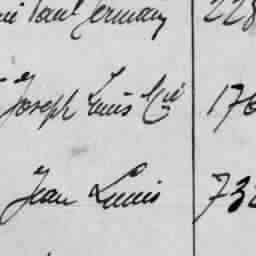 Paul Germain 228
Joseph Louis 176
Jean Louis 73